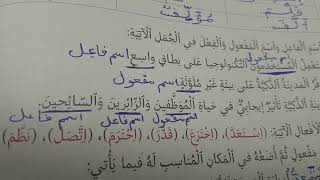 مُؤَلِّفٌ
ٱسْمَ ٱلْفَاعِلِ وَٱسْمَ ٱلْمَفْعُولِ وَٱلْفِعْلَ فِي ٱلْجُمَلِ ٱلْآتِيَةِ:
اسم فاعل
ٱلتِّكْنُولُوجِيَا عَلَى نِطَاقٍ وَاسِعٍ
ٱلْمَدِينَةُ ٱلذَّكِيَّةُ عَلَى بِيئَةٍ غَيْرِ مُلَوَّثَةٍ اسم مفعول
ٱلْمَدِينَةِ ٱلذَّكِيَّةِ تَأْثِيرٌ إِيجَابِيٌّ فِي حَيَاةِ ٱلْمُوَظَّفِينَ وَٱلزَّائِرِينَ وَٱلسَّائِحِينَ.
اسم مفعول اسم فاعل اسم فاعل
ٱلْأَفْعَالِ ٱلْآتِيَةِ: (اِسْتَعَدَّ)، (اِخْتَرَعَ)، (قَدَّرَ)، (اِحْتَرَمَ)، (اِتَّصَلَ)، (نَظَّمَ)
مَفْعُولٍ ثُمَّ أَضَعُهُ فِي ٱلْمَكَانِ ٱلْمُنَاسِبِ لَهُ فِيمَا يَأْتِي: